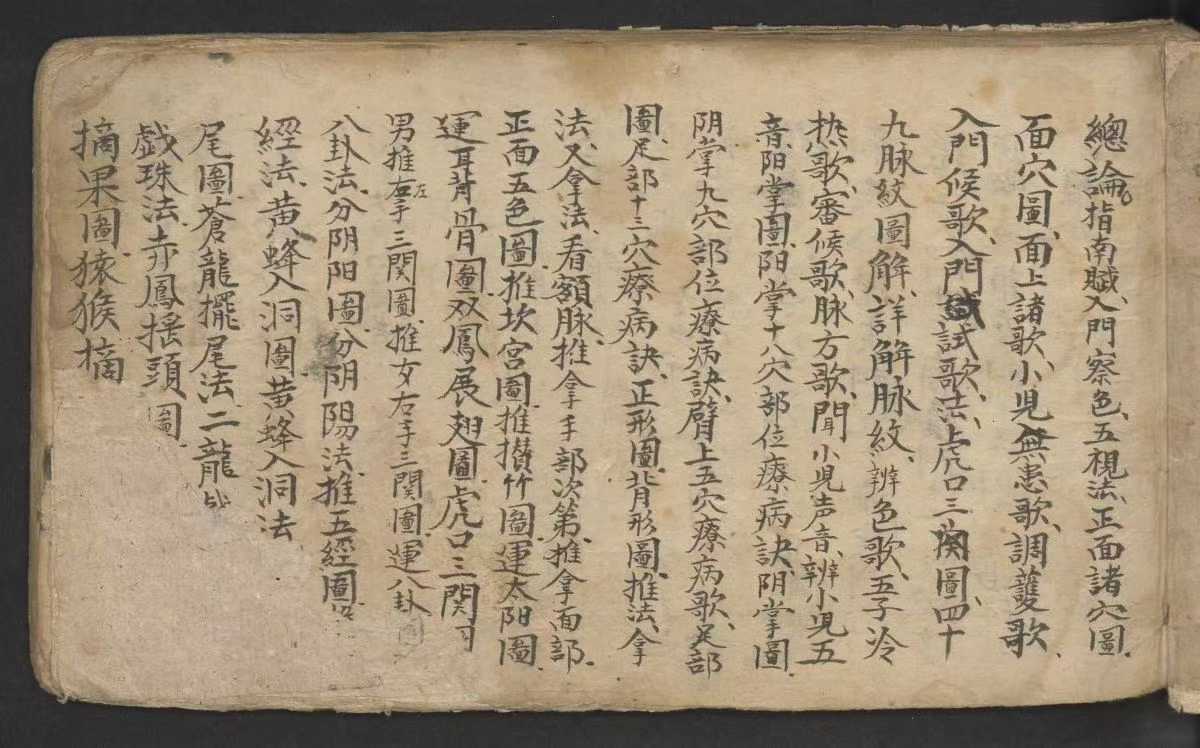 總論、指南賦、入門察色、五視法、正面諸穴圖、
面穴圖、面上諸歌、小児無患歌、調護歌
入門候歌、入門試歌、法上虎口三関圖、四十
九脉紋圖解、詳解脉紋、辨色歌、五子冷
热歌、審候歌、脉方歌、聞小児声音、辨小児五
音、阳掌圖、阳掌十八穴部位療病訣、阴掌圖、
阴掌九穴部位療病訣、臂上五穴療病歌、足部
圖、足部十三穴療病訣、正形圖、背形圖、推法、拿
法、又拿法、看額脉、推拿手部次第、推拿面部、
正面五色圖、推坎宮圖、推攅竹圖、運太阳圖、
運耳背骨圖、双鳳展翅圖、虎口三関
男推左手三関圖、推女右手三関圖、運八卦
八卦法、分阴阳圖、分阴陽法、推五經圖、
經法、黄蜂入洞圖、黄蜂入洞法
尾圖、蒼龍擺尾法、二龍
戯珠法、赤鳳揺頭圖
摘果圖、猿猴摘